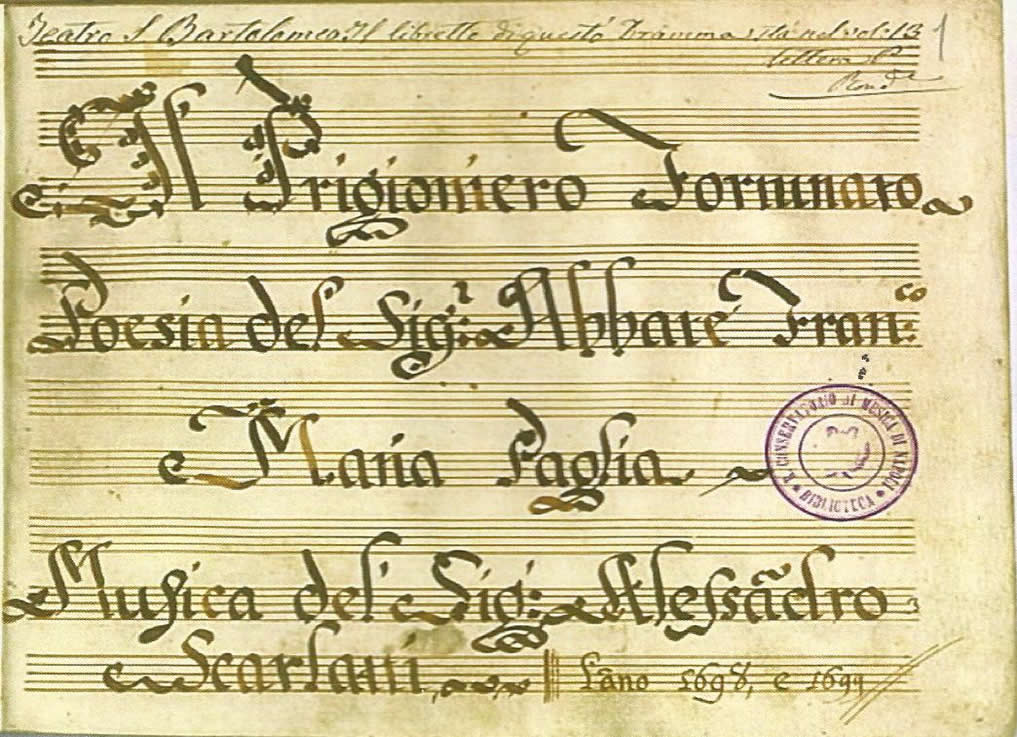 Teatro S Bartolomeo. Il libretto di questo Dramma stà nel vol: 13
1
lettera P
Rond.le
Il Prigioniero Fortunato
Poesia del Sig.r Abbate Fran:co
Maria Paglia
R. CONSERVATORIO DI MUSICA DI NAPOLI
BIBLIOTECA
Musica del Sig: Alessãdro
Scarlatti, L'ano 1698, e 1699